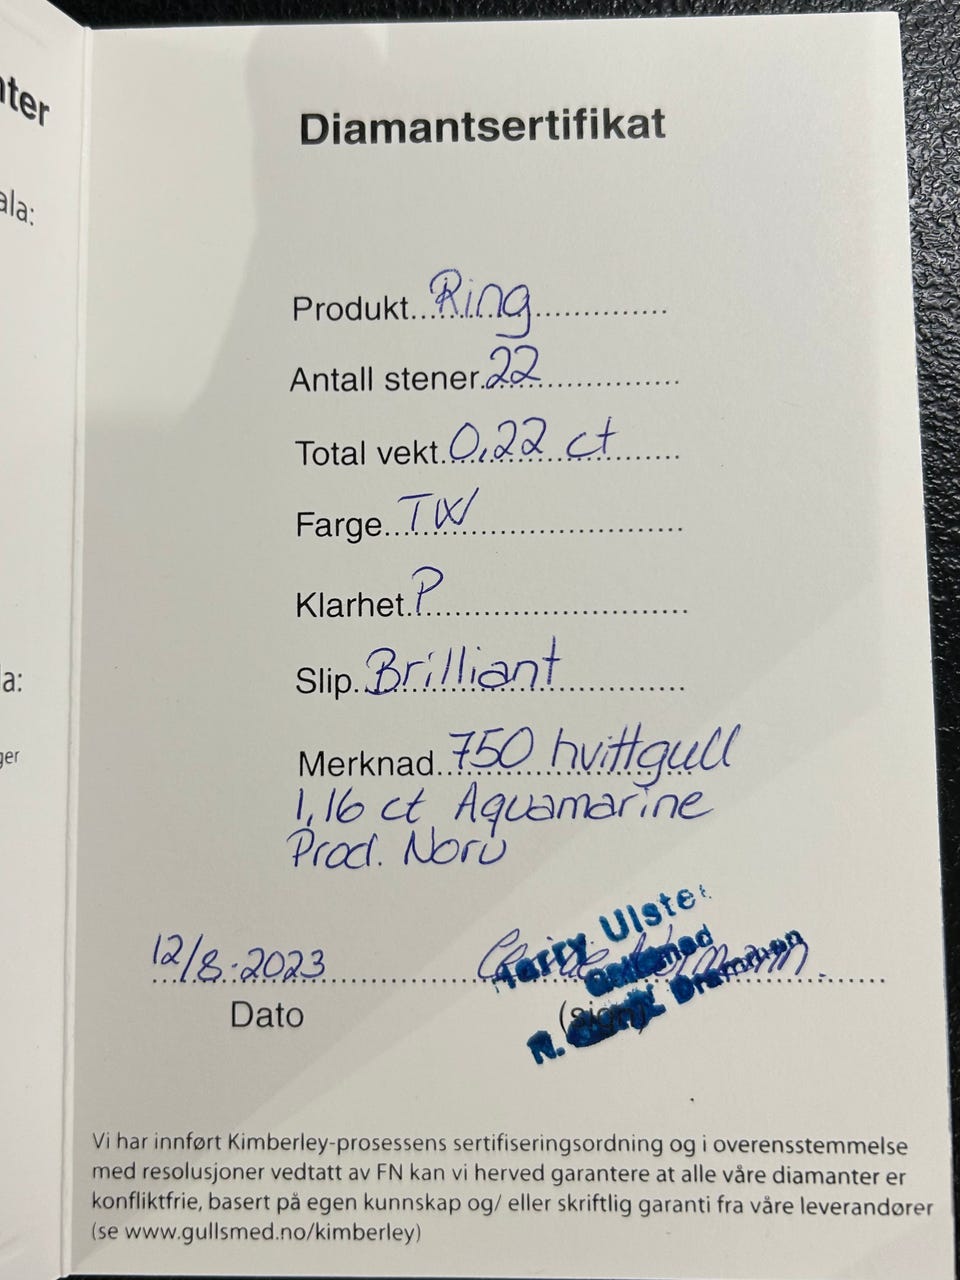 Diamantsertifikat
Produkt...Ring..............
Antall stener.22..............
Total vekt.0,22 ct.......
Farge...TW..............
Klarhet.P..............
Slip..Brilliant..............
Merknad..750 hvittgull
1,16 ct Aquamarine
Prod. Norv
12/8-2023
Dato
(sign)
Ulste
Drammen
Vi har innført Kimberley-prosessens sertifiseringsordning og i overensstemmelse
med resolusjoner vedtatt av FN kan vi herved garantere at alle våre diamanter er
konfliktfrie, basert på egen kunnskap og/ eller skriftlig garanti fra våre leverandører
(se www.gullsmed.no/kimberley)